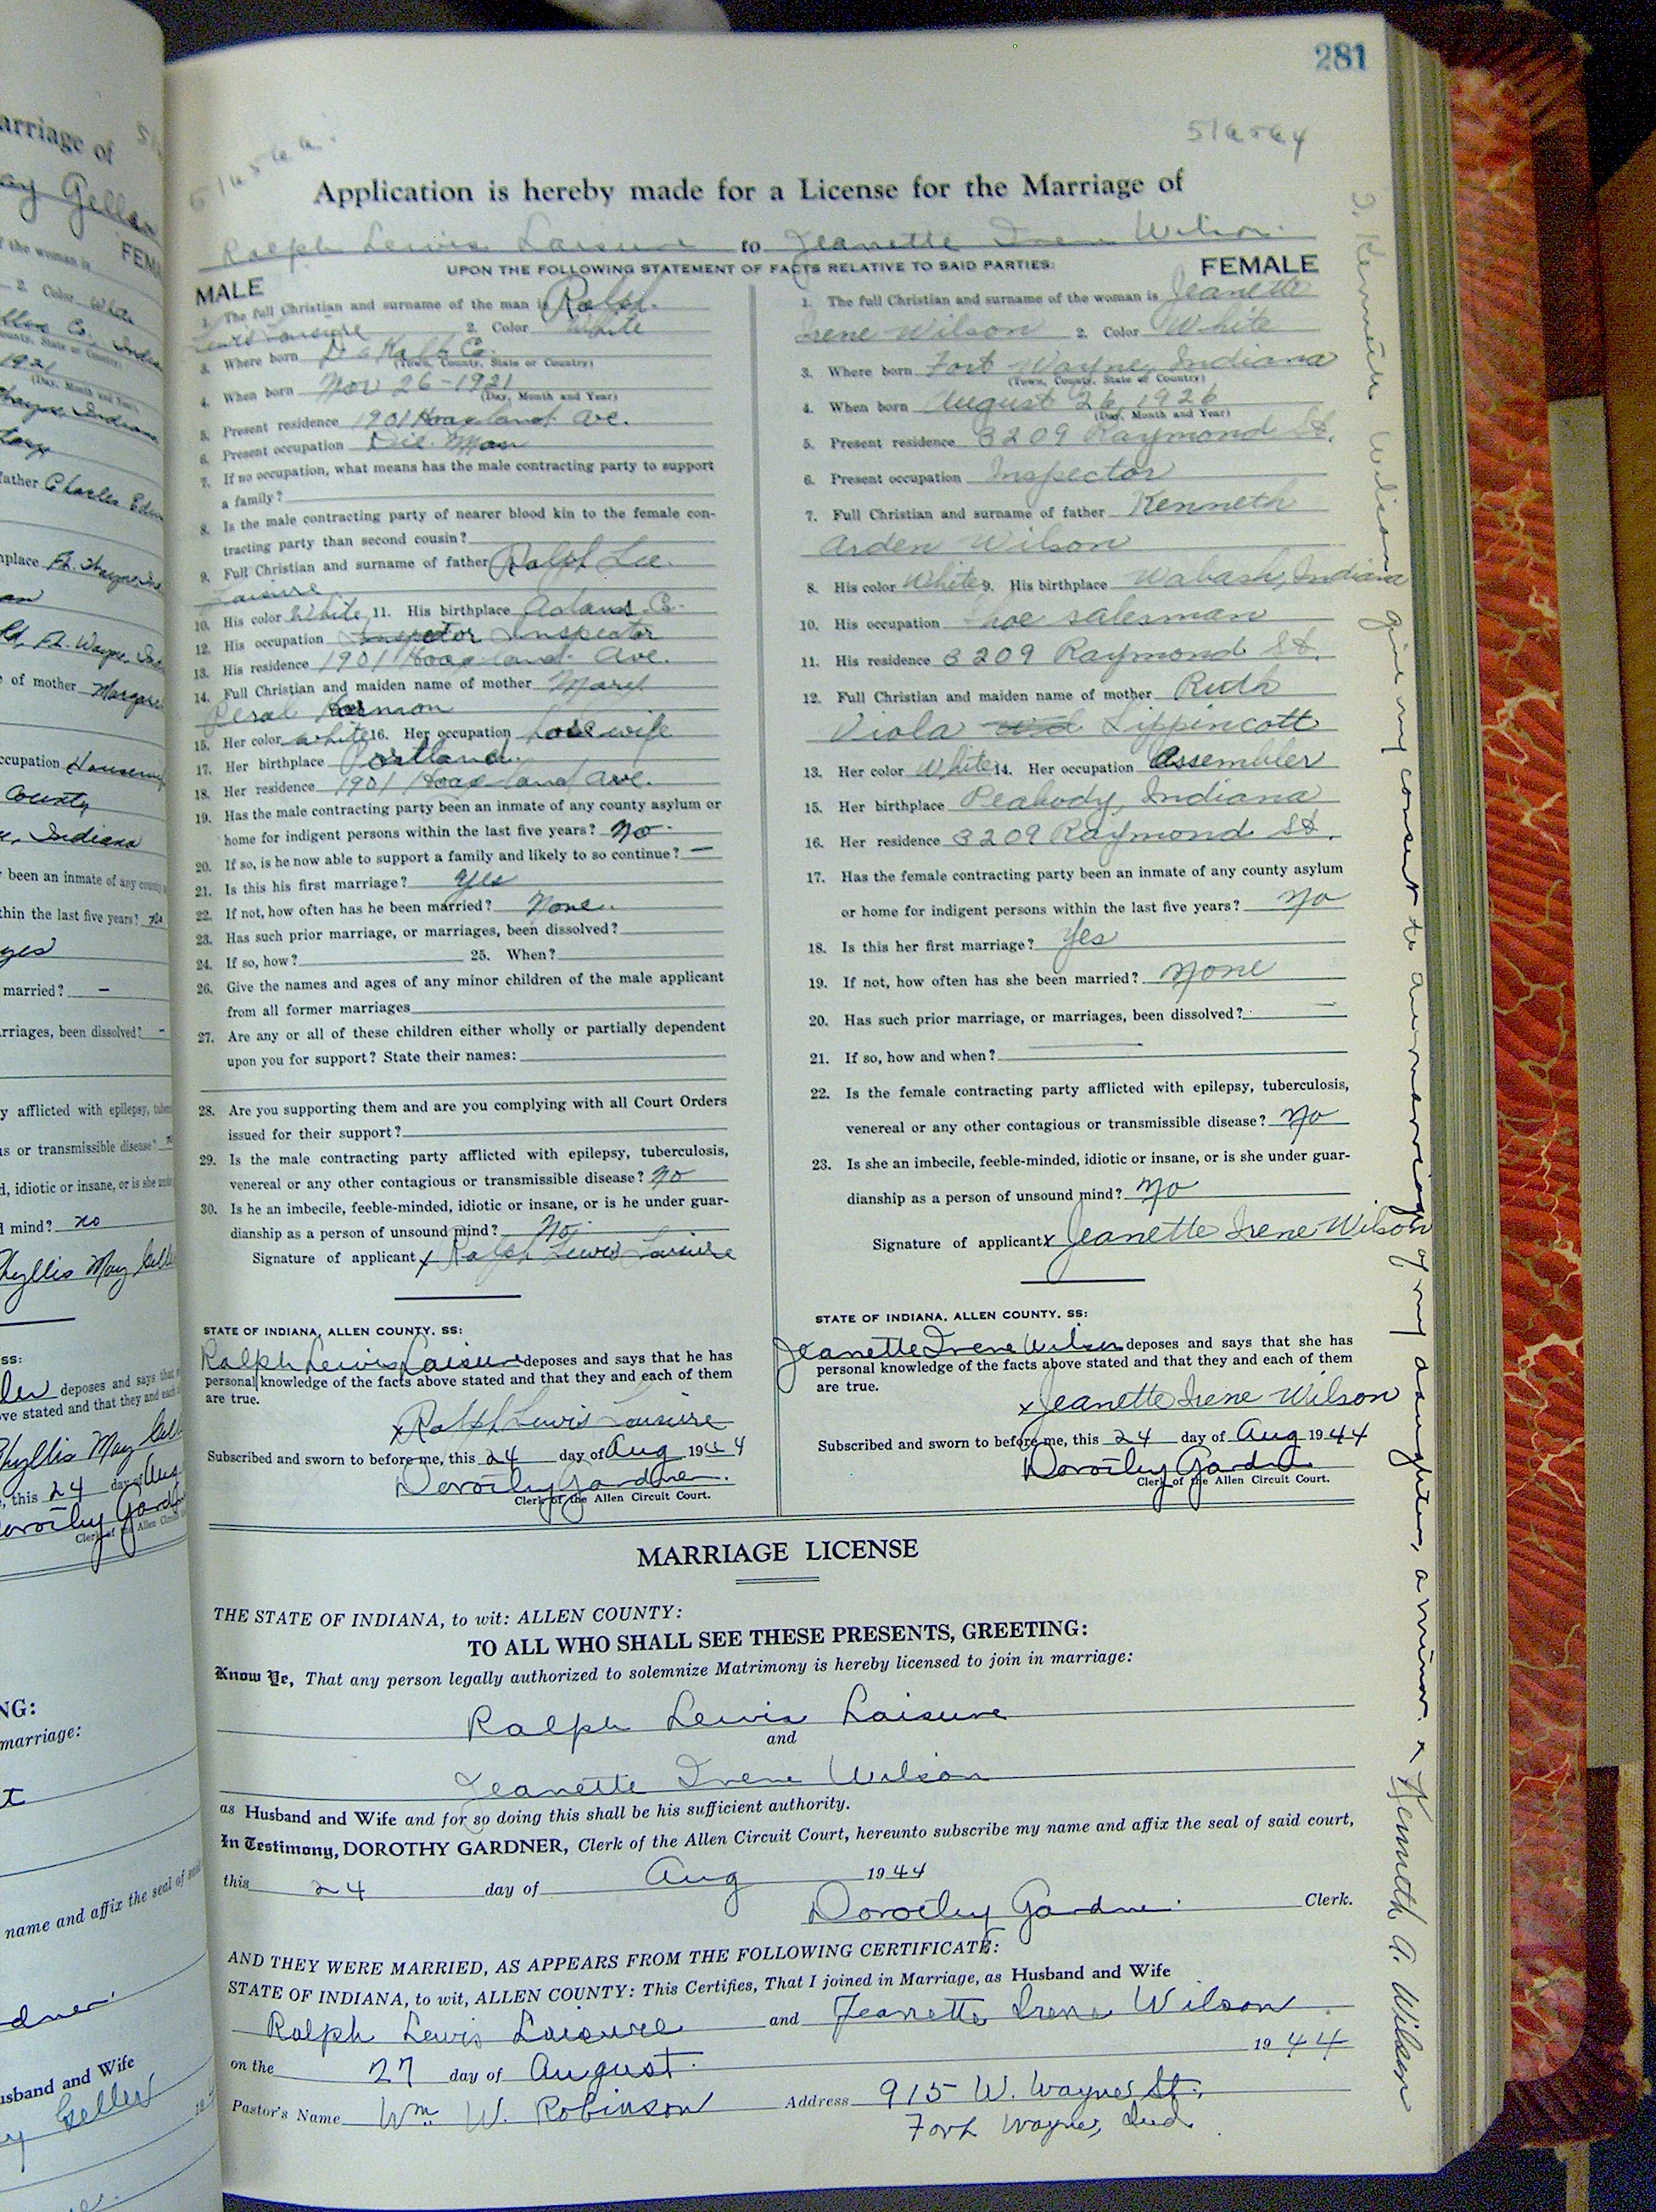 281
516564
Application is hereby made for a License for the Marriage of
Ralph Lewis Laisure to Jeanette Irene Wilson
UPON THE FOLLOWING STATEMENT OF FACTS RELATIVE TO SAID PARTIES:
MALE
1. The full Christian and surname of the man is Ralph
Lewis Laisure 2. Color White
3. Where born De Kalb Co.
(Town, County, State or Country)
4. When born Nov 26-1921
(Day, Month and Year)
5. Present residence 1901 Hoagland Ave.
6. Present occupation Die Man
7. If no occupation, what means has the male contracting party to support
a family?
8. Is the male contracting party of nearer blood kin to the female con-
tracting party than second cousin?
9. Full Christian and surname of father Ralph Lee
Laisure
10. His color White 11. His birthplace Adams Co.
12. His occupation Inspector
13. His residence 1901 Hoagland Ave.
14. Full Christian and maiden name of mother Mary
Peral Harmon
15. Her color White 16. Her occupation housewife
17. Her birthplace Portland
18. Her residence 1901 Hoagland Ave.
19. Has the male contracting party been an inmate of any county asylum or
home for indigent persons within the last five years? No
20. If so, is he now able to support a family and likely to so continue? —
21. Is this his first marriage? yes
22. If not, how often has he been married? None
23. Has such prior marriage, or marriages, been dissolved?
24. If so, how? 25. When?
26. Give the names and ages of any minor children of the male applicant
from all former marriages
27. Are any or all of these children either wholly or partially dependent
upon you for support? State their names:
28. Are you supporting them and are you complying with all Court Orders
issued for their support?
29. Is the male contracting party afflicted with epilepsy, tuberculosis,
venereal or any other contagious or transmissible disease? No
30. Is he an imbecile, feeble-minded, idiotic or insane, or is he under guar-
dianship as a person of unsound mind? No
Signature of applicant x Ralph Lewis Laisure
STATE OF INDIANA, ALLEN COUNTY, SS:
Ralph Lewis Laisure deposes and says that he has
personal knowledge of the facts above stated and that they and each of them
are true.
x Ralph Lewis Laisure
Subscribed and sworn to before me, this 24 day of Aug 1944
Dorothy Gardner
Clerk of the Allen Circuit Court.
FEMALE
1. The full Christian and surname of the woman is Jeanette
Irene Wilson 2. Color White
3. Where born Fort Wayne, Indiana
(Town, County, State or Country)
4. When born August 26, 1926
(Day, Month and Year)
5. Present residence 3209 Raymond St.
6. Present occupation Inspector
7. Full Christian and surname of father Kenneth
Arden Wilson
8. His color White 9. His birthplace Wabash, Indiana
10. His occupation Shoe salesman
11. His residence 3209 Raymond St.
12. Full Christian and maiden name of mother Ruth
Viola Lippincott
13. Her color White 14. Her occupation Assembler
15. Her birthplace Peabody, Indiana
16. Her residence 3209 Raymond St.
17. Has the female contracting party been an inmate of any county asylum
or home for indigent persons within the last five years? No
18. Is this her first marriage? Yes
19. If not, how often has she been married? None
20. Has such prior marriage, or marriages, been dissolved? —
21. If so, how and when? —
22. Is the female contracting party afflicted with epilepsy, tuberculosis,
venereal or any other contagious or transmissible disease? No
23. Is she an imbecile, feeble-minded, idiotic or insane, or is she under guar-
dianship as a person of unsound mind? No
Signature of applicant x Jeanette Irene Wilson
STATE OF INDIANA, ALLEN COUNTY, SS:
Jeanette Irene Wilson deposes and says that she has
personal knowledge of the facts above stated and that they and each of them
are true.
x Jeanette Irene Wilson
Subscribed and sworn to before me, this 24 day of Aug 1944
Dorothy Gardner
Clerk of the Allen Circuit Court.
I, Kenneth Wilson give my consent to the marriage of my daughter, a minor. x Kenneth A. Wilson
MARRIAGE LICENSE
THE STATE OF INDIANA, to wit: ALLEN COUNTY:
TO ALL WHO SHALL SEE THESE PRESENTS, GREETING:
Know Ye, That any person legally authorized to solemnize Matrimony is hereby licensed to join in marriage:
Ralph Lewis Laisure
and
Jeanette Irene Wilson
as Husband and Wife and for so doing this shall be his sufficient authority.
In Testimony, DOROTHY GARDNER, Clerk of the Allen Circuit Court, hereunto subscribe my name and affix the seal of said court,
this 24 day of Aug 1944
Dorothy Gardner Clerk.
AND THEY WERE MARRIED, AS APPEARS FROM THE FOLLOWING CERTIFICATE:
STATE OF INDIANA, to wit, ALLEN COUNTY: This Certifies, That I joined in Marriage, as Husband and Wife
Ralph Lewis Laisure and Jeanette Irene Wilson
on the 27 day of August 1944
Pastor's Name Wm. W. Robinson Address 915 W. Wayne St.
Fort Wayne, Ind.